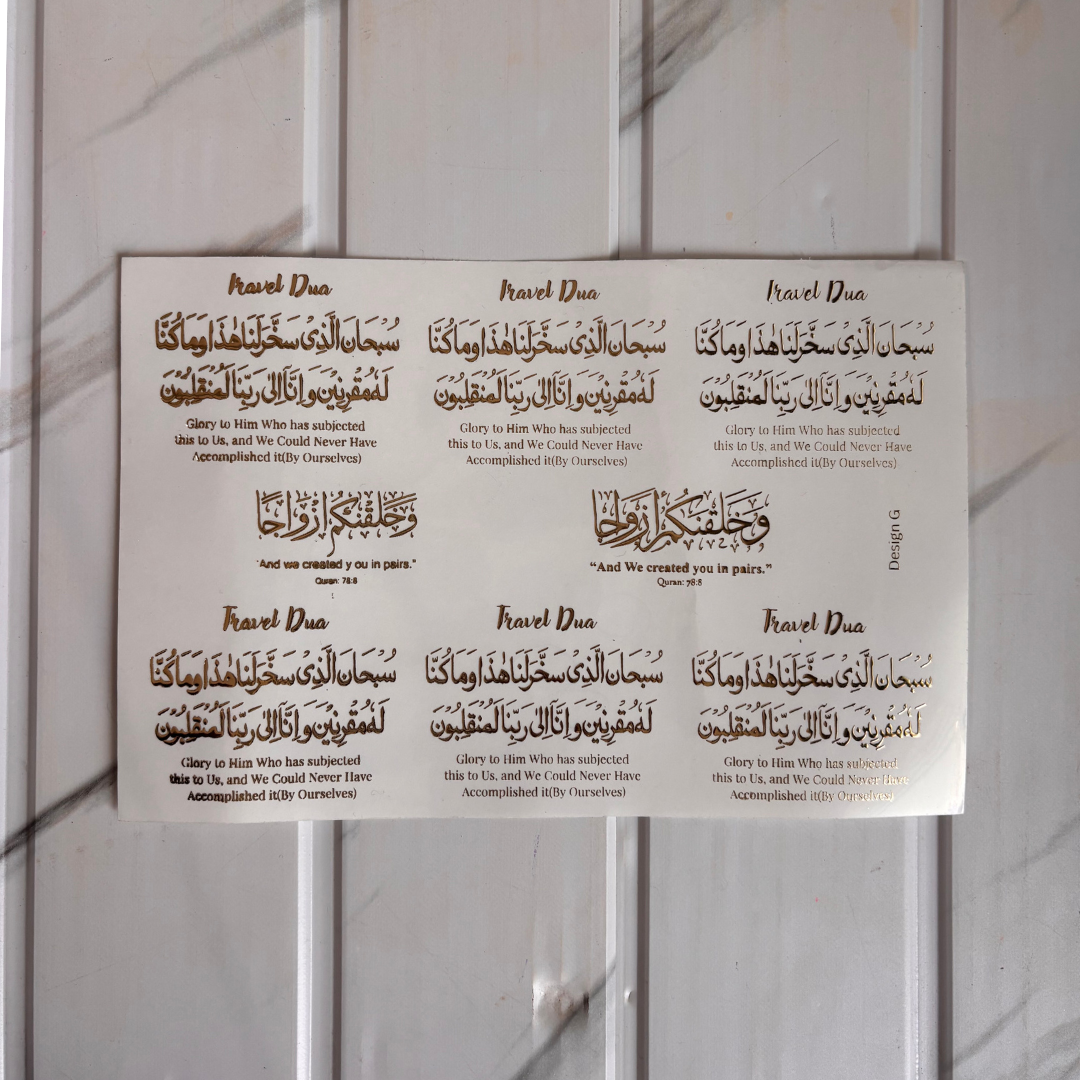 Travel Dua
سُبحَانَ الَّذِىْ سَخَّرَلَنَا هٰذَا وَمَا كُنَّا
لَهٗ مُقْرِنِيْنَ وَ اِنَّآ اِلٰى رَبِّنَا لَمُنْقَلِبُوْنَ
Glory to Him Who has subjected
this to Us, and We Could Never Have
Accomplished it(By Ourselves)
Travel Dua
سُبحَانَ الَّذِىْ سَخَّرَلَنَا هٰذَا وَمَا كُنَّا
لَهٗ مُقْرِنِيْنَ وَ اِنَّآ اِلٰى رَبِّنَا لَمُنْقَلِبُوْنَ
Glory to Him Who has subjected
this to Us, and We Could Never Have
Accomplished it(By Ourselves)
Travel Dua
سُبحَانَ الَّذِىْ سَخَّرَلَنَا هٰذَا وَمَا كُنَّا
لَهٗ مُقْرِنِيْنَ وَ اِنَّآ اِلٰى رَبِّنَا لَمُنْقَلِبُوْنَ
Glory to Him Who has subjected
this to Us, and We Could Never Have
Accomplished it(By Ourselves)
وَخَلَقْنٰكُمْ اَزْوَاجًا
"And we created you in pairs."
Quran: 78:8
وَخَلَقْنٰكُمْ اَزْوَاجًا
“And We created you in pairs.”
Quran: 78:8
Design G
Travel Dua
سُبحَانَ الَّذِىْ سَخَّرَلَنَا هٰذَا وَمَا كُنَّا
لَهٗ مُقْرِنِيْنَ وَ اِنَّآ اِلٰى رَبِّنَا لَمُنْقَلِبُوْنَ
Glory to Him Who has subjected
this to Us, and We Could Never Have
Accomplished it(By Ourselves)
Travel Dua
سُبحَانَ الَّذِىْ سَخَّرَلَنَا هٰذَا وَمَا كُنَّا
لَهٗ مُقْرِنِيْنَ وَ اِنَّآ اِلٰى رَبِّنَا لَمُنْقَلِبُوْنَ
Glory to Him Who has subjected
this to Us, and We Could Never Have
Accomplished it(By Ourselves)
Travel Dua
سُبحَانَ الَّذِىْ سَخَّرَلَنَا هٰذَا وَمَا كُنَّا
لَهٗ مُقْرِنِيْنَ وَ اِنَّآ اِلٰى رَبِّنَا لَمُنْقَلِبُوْنَ
Glory to Him Who has subjected
this to Us, and We Could Never Have
Accomplished it(By Ourselves)